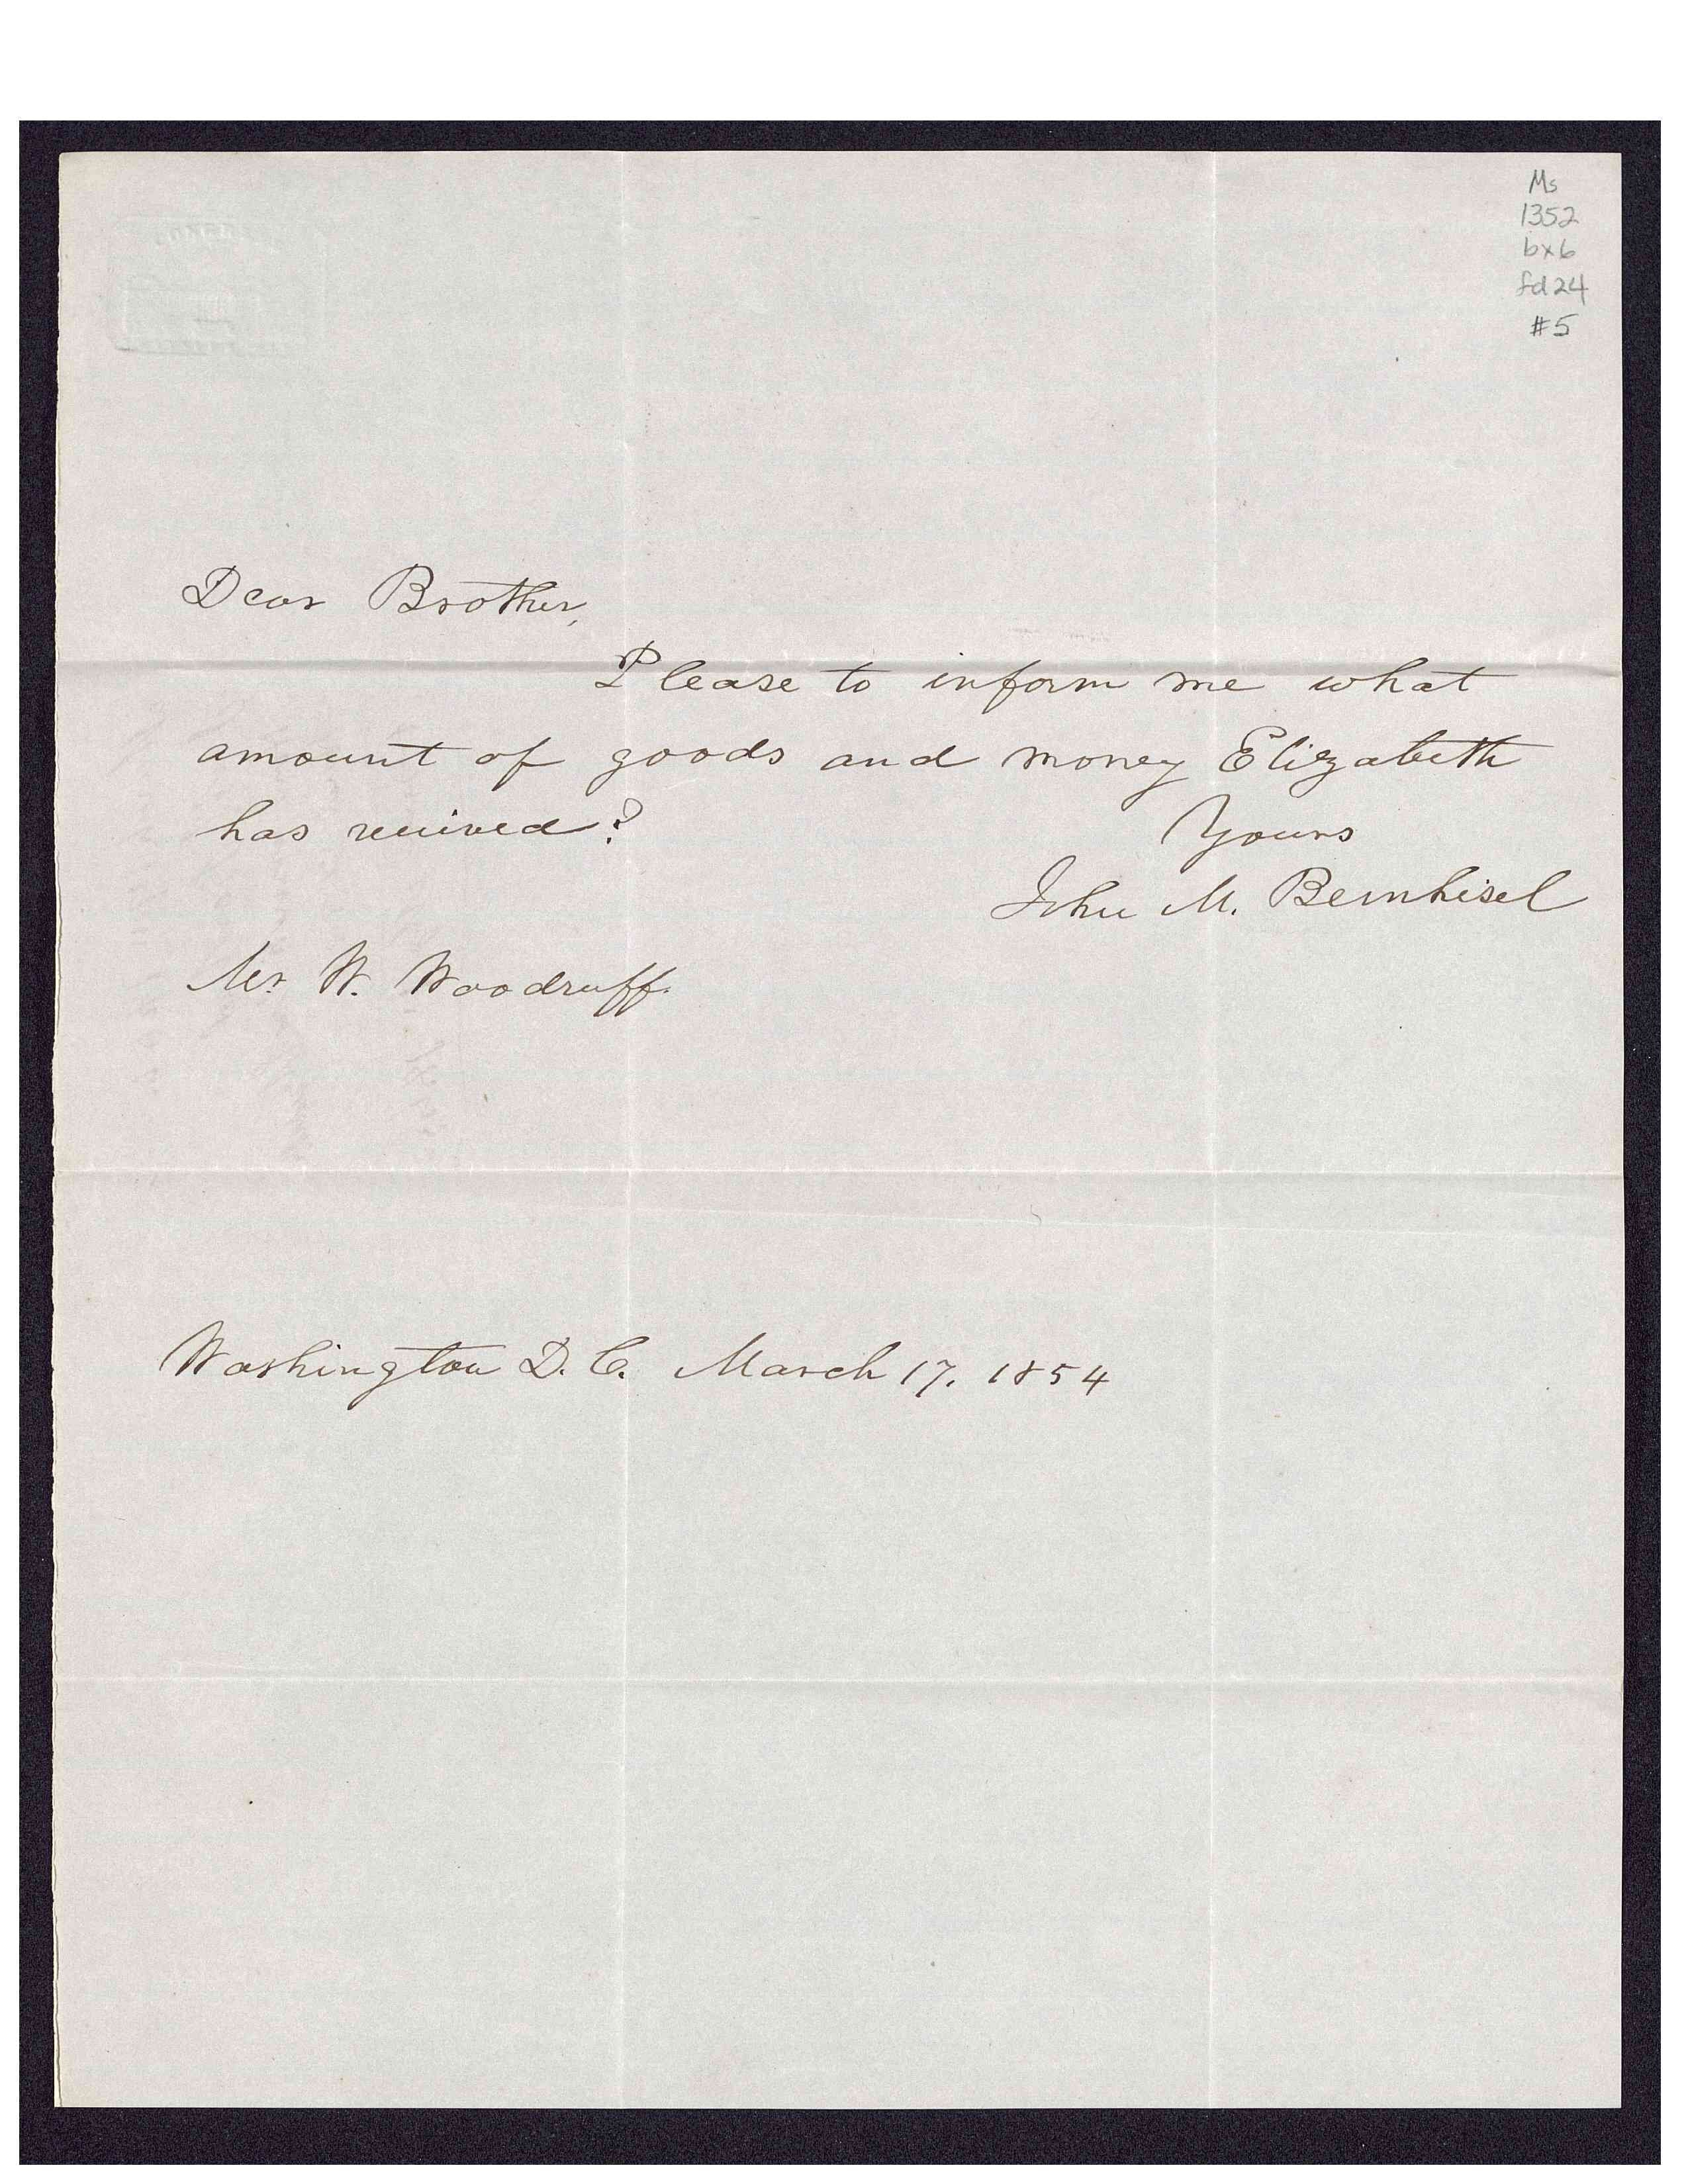 Ms
1352
bx6
fd 24
#5
Dear Brother,
Please to inform me what
amount of goods and money Elizabeth
has received?
Yours
John M. Bernhisel
Mr W. Woodruff.
Washington D.C. March 17, 1854